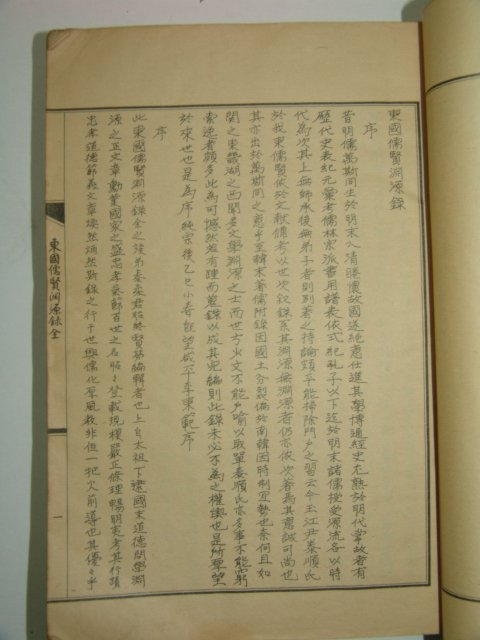 東國儒賢淵源錄
序
昔明儒萬斯同生於明末入清購懷故國遂絕意仕進其學博通經史尤熟於明代掌故者有
歷代史表紀元彙考儒林宗派書用譜表依式紀孔子以下迄於明末諸儒授受源流各以時
代為次其上無師承後無弟子者則別著之持論頗平能掃除門戶之習云今玉江尹泰順氏
於我東儒賢依於文獻備考以世次敍錄系其淵源無淵源者仍亦依次著焉其意誠可尚也
其亦出於萬斯同之意乎至韓末著儒附錄因國土分裂偏於南韓因時制宜勢也奈何且如
關之東畿湖之西間多文學淵源之士而世方少文不能戶喻以取單委順氏亦多事不能窮
索逸者頗多此為可憾然若有踵而蒐錄以成其完編則此錄未必不為之權輿也是所望
於來世也是為序純宗後乙巳小春旣望咸平李東範序
序
此東國儒賢淵源錄全之後弟泰委君始終賢勞編輯者也上自太祖下逮國末道德問學淵
源之正文章勳業國家之盛忠孝義節百世之名昭々登載規模嚴正條理暢明夷考其行蹟
忠孝道德節義文章煥然炳然斯錄之行于世與儒化厚風教非但一把火前導也其優々乎
東國儒賢淵源錄全
一